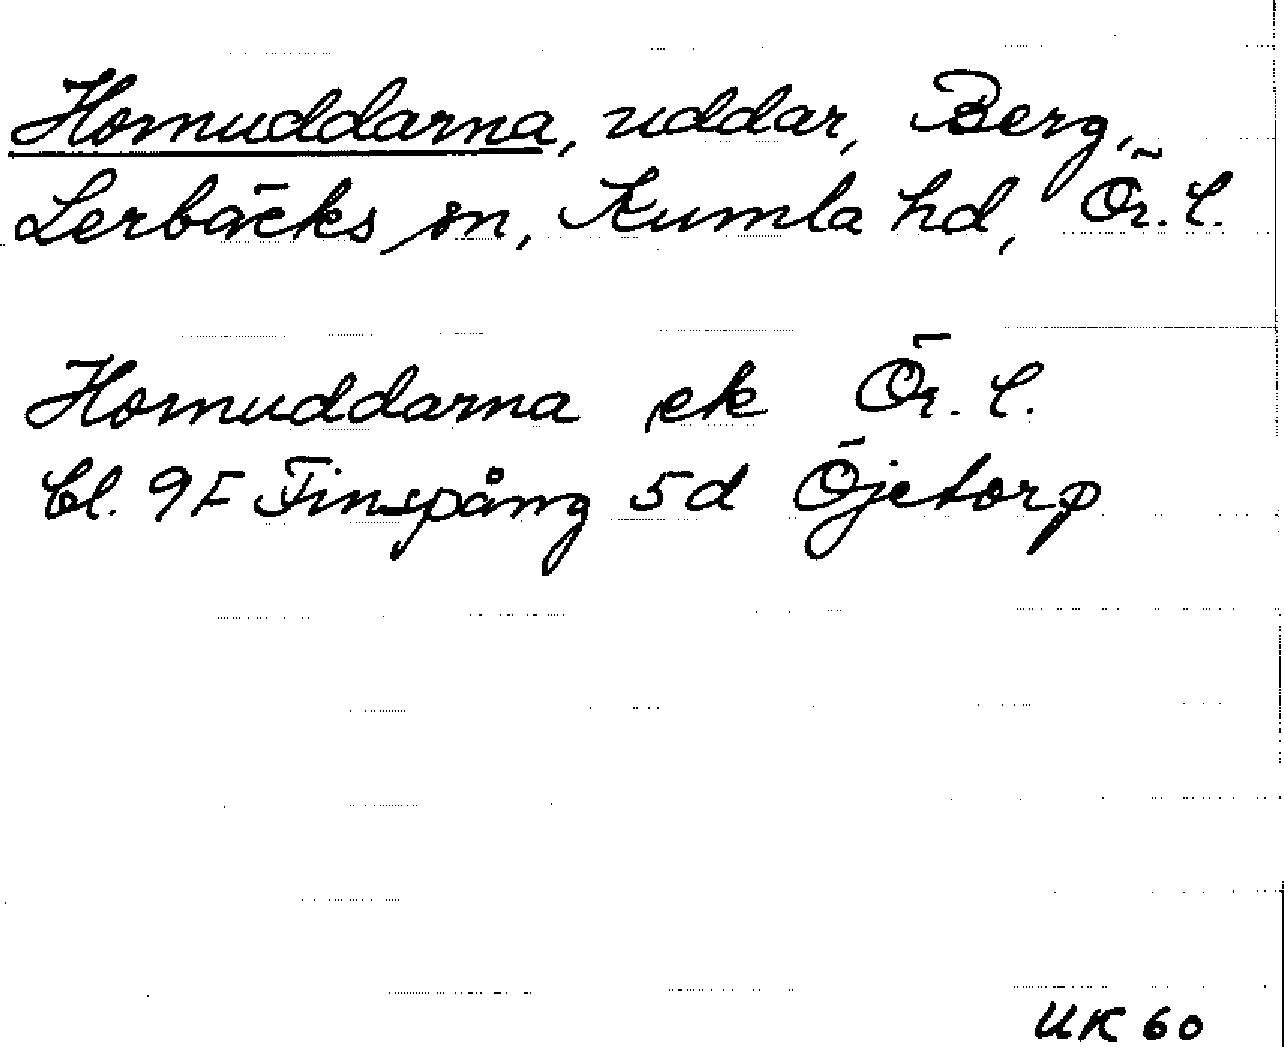 Hornuddarna, uddar, Berg,
Lerbäcks sn, Kumla hd, Ör. l.
Hornuddarna ek Ör. l.
bl. 9F Finspång 5d Öjetorp
UK 60